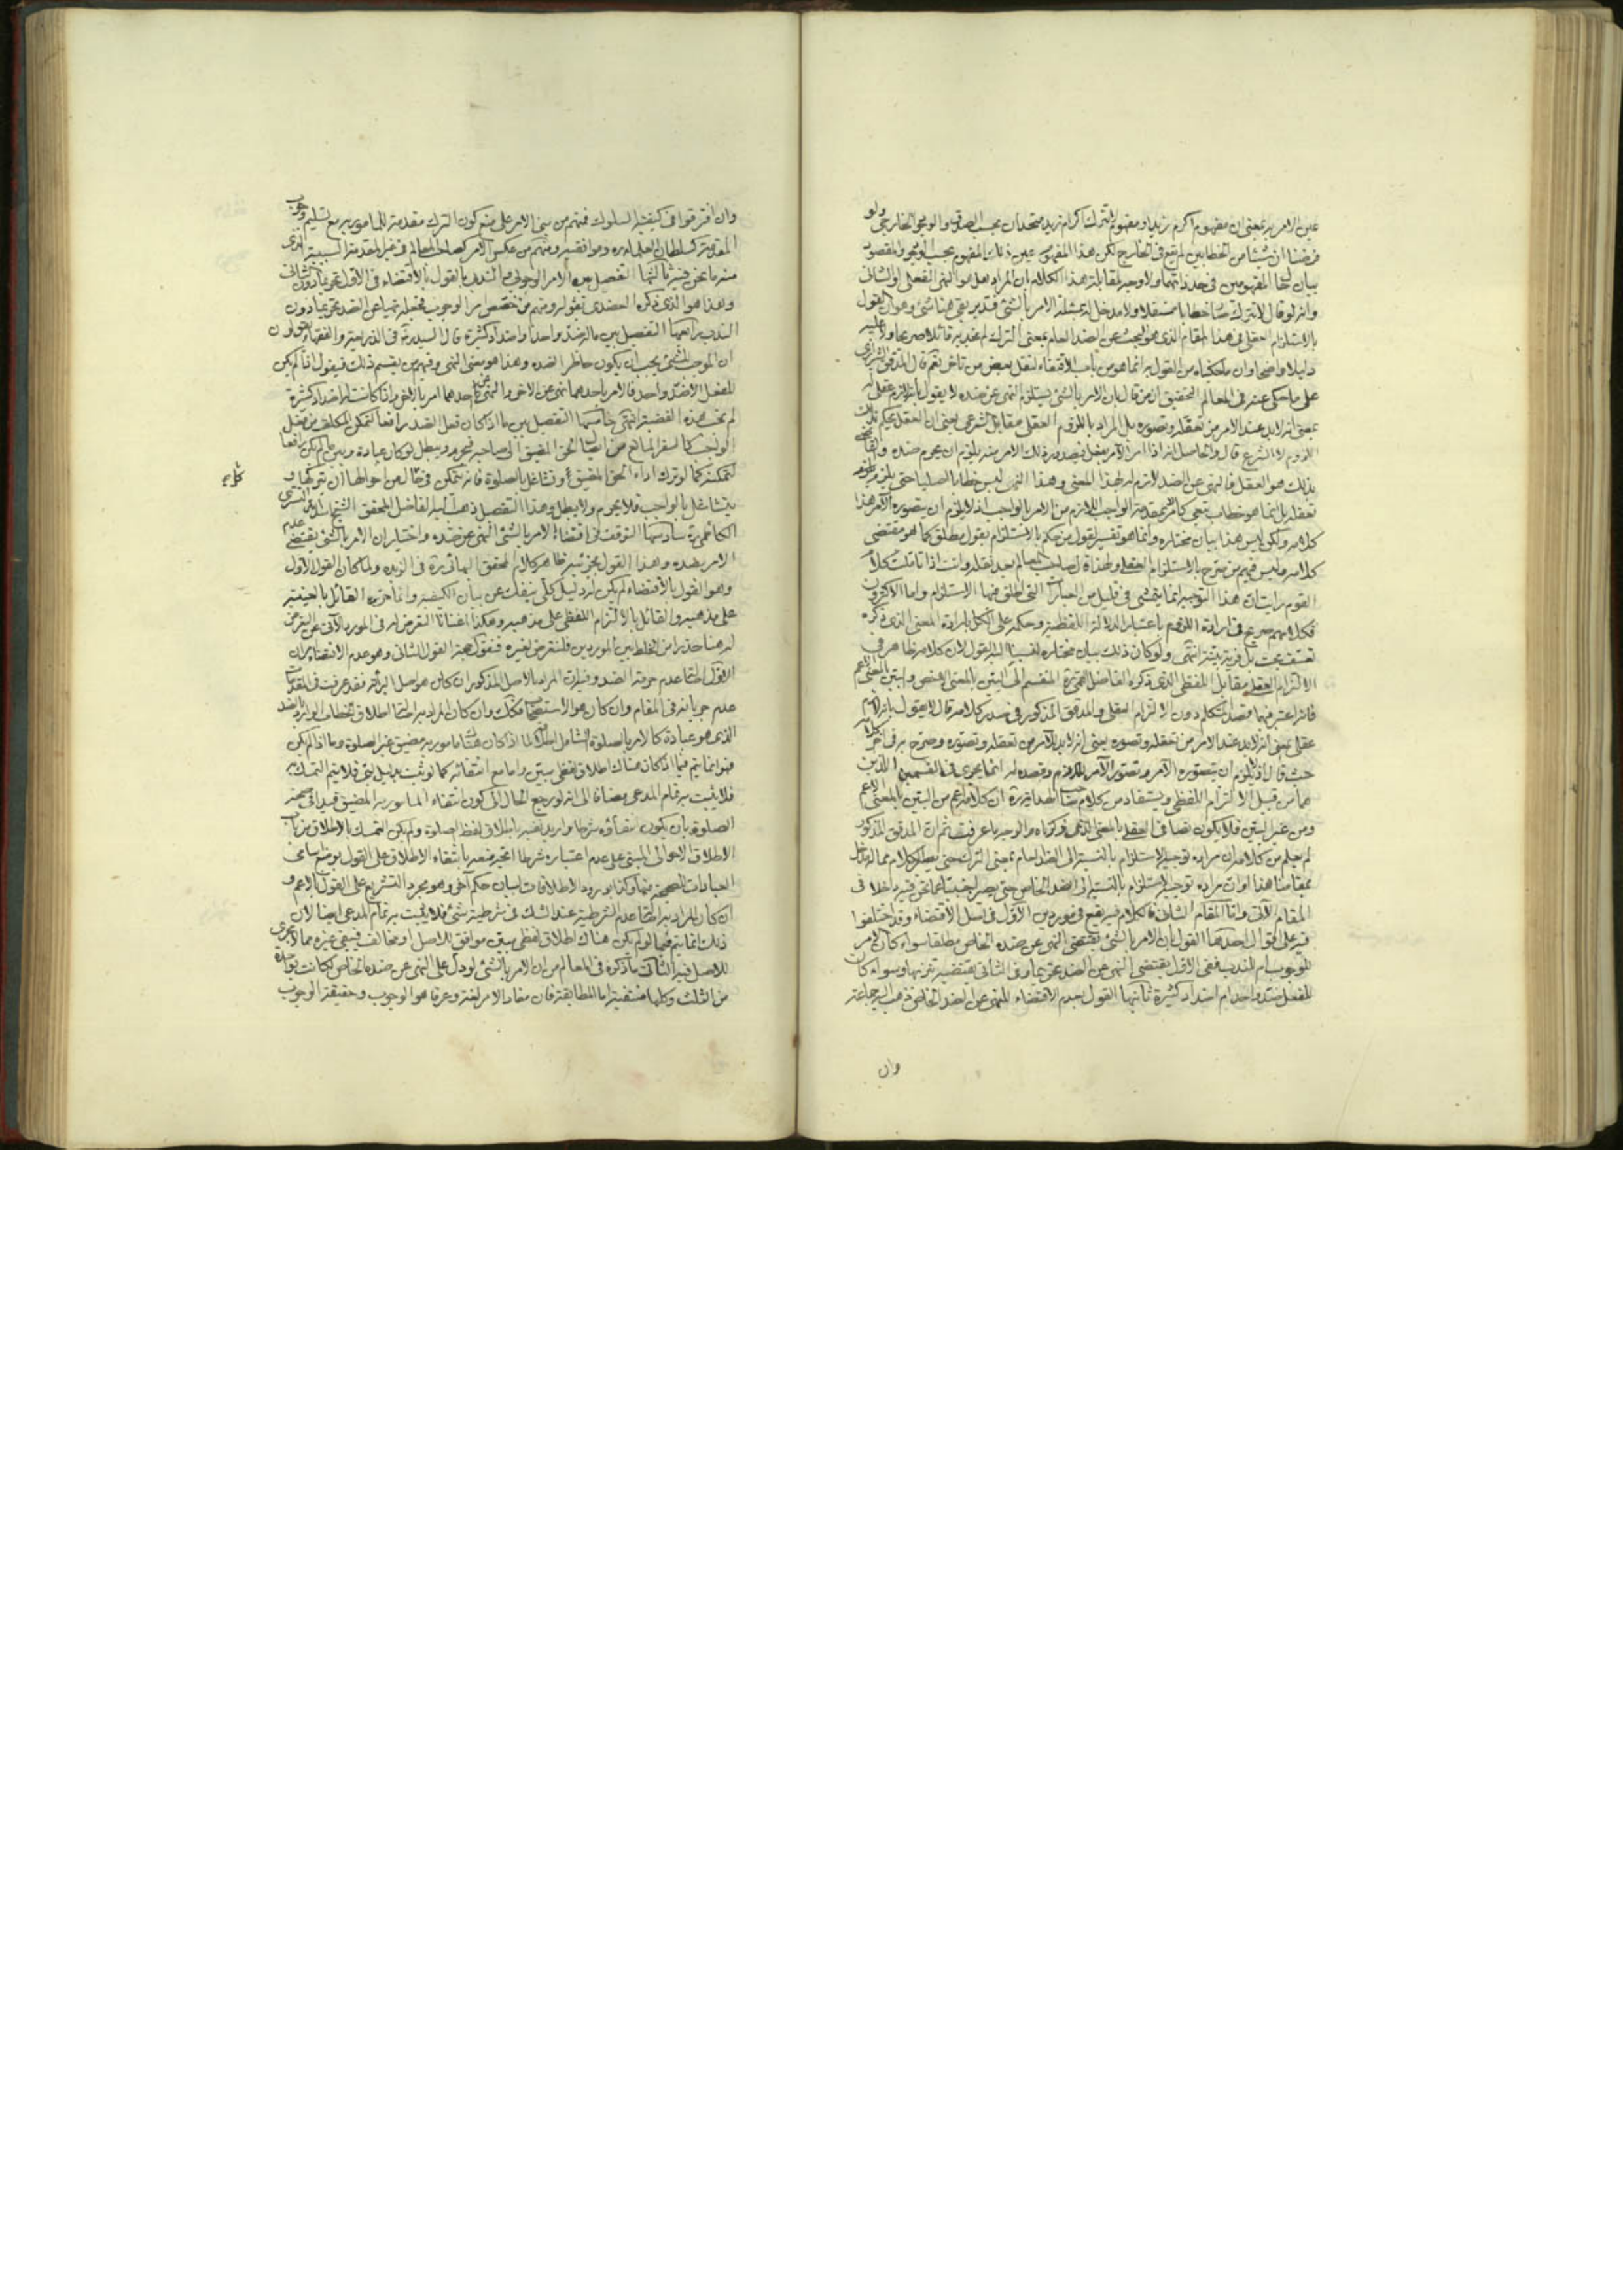 عين الامر به بمعنى ان مفهوم اكرم زيدا ومفهوم لا تترك اكرام زيد متحدان بحسب الصدق والوجود الخارجى ولو
فرضنا ان شيئا من الخطابين لم يقع فى الخارج لكن هذا المفهوم عين ذلك المفهوم بحسب الوجود والمقصود
بيان المفهومين فى حد ذاتهما ولا وجه لمقابلة هذا الكلام بان المراد بعل هو النهى الفعلى او الشانى
وانه لو قال لا تترك خطابا مستقلا ولا مدخل له بمسئلة الامر بالشئ فتدبر بقى هنا شئ وهو ان القول
بالاستلزام العقلى فى هذا المقام الذى هو البحث عن الضد العام بمعنى الترك لم نجد به قائلا صريحا ولا عليه
دليلا واضحا وان ما حكيناه من القول به انما هو من باب الاقتضاء لنقل بعض من تاخر نعم قال المدقق الشيروانى
على ما حكى عنه فى المعالم التحقيق ان من قال بان الامر بالشئ يستلزم النهى عن ضده لا يقول بانه لازم عقلى له
بمعنى انه لا بد عند الامر من تعقله وتصوره بل المراد باللزوم العقلى مقابل الشرعى يعنى ان العقل يحكم بذلك
اللزوم لا الشرع قال والحاصل انه اذا امر الآمر بفعل فبصدور ذلك الامر منه يلزم ان يحرم ضده والقاضى
بذلك هو العقل فالنهى عن الضد لازم له بهذا المعنى وهذا النهى ليس خطابا اصليا حتى يلزم
تعقله بل انما هو خطاب تبعى كالامر بمقدمة الواجب اللازم من الامر بالواجب اذ لا يلزم ان يتصوره الآمر هذا
كلامه ولكن ليس هذا بيان مختاره وانما هو تفسير لقول من حكم بالاستلزام بقول مطلق كما هو مقتضى
كلامه وليس فيهم من صرح بالاستلزام العقلى ولهذا قال صاحب المعالم بعد نقله وانت اذا تاملت كلام
القوم رايت ان هذا التوجيه انما يتمشى فى قليل من العبارات التى اطلق فيها الاستلزام واما الاكثرون
فكلامهم صريح فى ارادة اللزوم باعتبار الدلالة اللفظية وحكمه على الكل بارادة المعنى الذى ذكره
تعسف بحت بل فرية بينة انتهى ولو كان ذلك بيان مختاره لنسبنا اليه القول لان كلامه ظاهر فى
الالتزام العقلى مقابل اللفظى الذى ذكره الفاضل القمى ره المنقسم الى البين بالمعنى الاخص والبين بالمعنى الاعم
فانه اعتبر فيهما قصد المتكلم دون الالتزام العقلى والمدقق المذكور فى صدر كلامه قال لا يقول بانه لازم
عقلى بمعنى انه لا بد عند الامر من تعقله وتصوره يعنى انه لا بد للآمر من تعقله وتصوره وصرح به فى آخر كلامه
حيث قال اذ لا يلزم ان يتصوره الآمر وتصور الآمر للازم وقصده له انما يجرى فى القسمين اللذين
هما من قبيل الالتزام اللفظى ويستفاد من كلام صاحب الهداية ره ان كلامه اعم من البين بالمعنى الاعم
ومن غير البين فلا يكون نصا فى العقلى بالمعنى الذى ذكرناه والوجه ما عرفت ثم ان المدقق المذكور
لم يعلم من كلامه ان مراده توجيه الاستلزام بالنسبة الى الضد العام بمعنى الترك حتى يعطى كلامه مما له دخل
بمقامنا هذا او ان مراده توجيه الاستلزام بالنسبة الى الضد الخاص حتى يصير اجنبيا عما نحن فيه داخلا فى
المقام الآتى واما المقام الثانى فالكلام فيه يقع فى موردين الاول فى اصل الاقتضاء وقد اختلفوا
فيه على اقوال احدها القول بان الامر بالشئ يقتضى النهى عن ضده الخاص مطلقا سواء كان الامر
للوجوب ام للندب ففى الاول يقتضى النهى عن الضد تحريما وفى الثانى يقتضيه تنزيها وسواء كان
للفعل ضد واحد ام اضداد كثيرة ثانيها القول بعدم الاقتضاء للنهى عن الضد الخاص ذهب اليه جماعة
وان
وان افترقوا فى كيفية السلوك فمنهم من بنى الامر على منع كون الترك مقدمة للمامور به مع تسليم وجوب
المقدمة كسلطان العلماء ره وموافقيه ومنهم من عكس الامر كصاحب المعالم فى غير المقدمة السببية الذى
منه ما نحن فيه ثالثها التفصيل بين الامر الوجوبى والندب بالقول بالاقتضاء فى الاول تحريما دون الثانى
وهذا هو الذى ذكره العضدى بقوله ومنهم من خصص امر الوجوب فجعله نهيا عن الضد تحريما دون
الندب رابعها التفصيل بين ما له ضد واحد وما له اضداد كثيرة قال السيد ره فى الذريعة والفقهاء يقولون
ان الموجب للشئ يجب ان يكون حاظرا لضده وهذا هو معنى النهى وفيهم من يقسم ذلك فيقول اذا لم يكن
للفعل الا ضد واحد فالامر باحدهما نهى عن الآخر والنهى عن احدهما امر بالآخر واذا كانت له اضداد كثيرة
لم تجب هذه القضية انتهى خامسها التفصيل بين ما اذا كان فعل الضد رافعا لتمكن المكلف من فعل
الواجب كالسفر المانع من ايصال الحق المضيق الى صاحبه فيحرم ويبطل لو كان عبادة وبين ما لم يكن رافعا
لتمكنه كما لو ترك اداء الحق المضيق وتشاغل بالصلوة فانه يتمكن فى كل من احوالها ان يتركها و
كل
يتشاغل بالواجب فلا يحرم ولا يبطل وهذا التفصيل ذهب اليه الفاضل المحقق الشيخ اسد الله التسترى
الكاظمى ره سادسها التوقف فى اقتضاء الامر بالشئ النهى عن ضده واختيار ان الامر بالشئ يقتضى عدم
الامر بضده وهذا القول بجزئيه ظاهر كلام المحقق البهائى ره فى الزبدة ولما كان القول الاول
وهو القول بالاقتضاء لم يكن له دليل كلى ينفك عن بيان الكيفية وانما حرره القائل بالعينية
على مذهبه والقائل بالالتزام اللفظى على مذهبه وهكذا اغنانا التعرض له فى المورد الآتى عن التعرض
له هنا حذرا من الخلط بين الموردين فلنتعرض لغيره فنقول حجة القول الثانى وهو عدم الاقتضاء امران
الاول اصالة عدم حرمة الضد وفيه ان المراد بالاصل المذكور ان كان هو اصل البرائة فقد عرفت فى المقدمات
عدم جريانه فى المقام وان كان هو الاستصحاب فكذلك وان كان المراد به اصالة اطلاق الخطاب الوارد بالضد
الذى هو عبادة كالامر بالصلوة الشامل اطلاقه لما اذا كان هناك مامور به مضيق غير الصلوة وما اذا لم يكن
فهو انما يتم فيما اذا كان هناك اطلاق لفظى مبين واما مع انتفائه كما لو ثبت بدليل لبى فلا يتم التمسك به
فلا يثبت به تمام المدعى مضافا الى انه لو رجع الحال الى كون انتفاء المامور به المضيق قيدا فى صحة
الصلوة بان يكون انتفاؤه شرطا واريد نفيه باطلاق لفظ الصلوة ولم يكن التمسك بالاطلاق من باب
الاطلاق الاحوالى المبتنى على عدم اعتباره شرطا اتجه منعه بانتفاء الاطلاق على القول بوضع اسامى
العبادات للصحيحة منها وكذا بورود الاطلاقات لبيان حكم آخر وهو مجرد التشريع على القول بالاعم و
ان كان المراد به اصالة عدم الشرطية عند الشك فى شرطية شئ فلا يثبت به تمام المدعى ايضا لان
ذلك انما يتم فيما لو لم يكن هناك اطلاق لفظى مبين موافق للاصل او مخالف فيبقى غيره مما لا مجرى
للاصل فيه الثانى ما ذكره فى المعالم من ان الامر بالشئ لو دل على النهى عن ضده الخاص لكانت بواحدة
من الثلث وكلها منتفية اما المطابقة فلان مفاد الامر لغة وعرفا هو الوجوب وحقيقة الوجوب